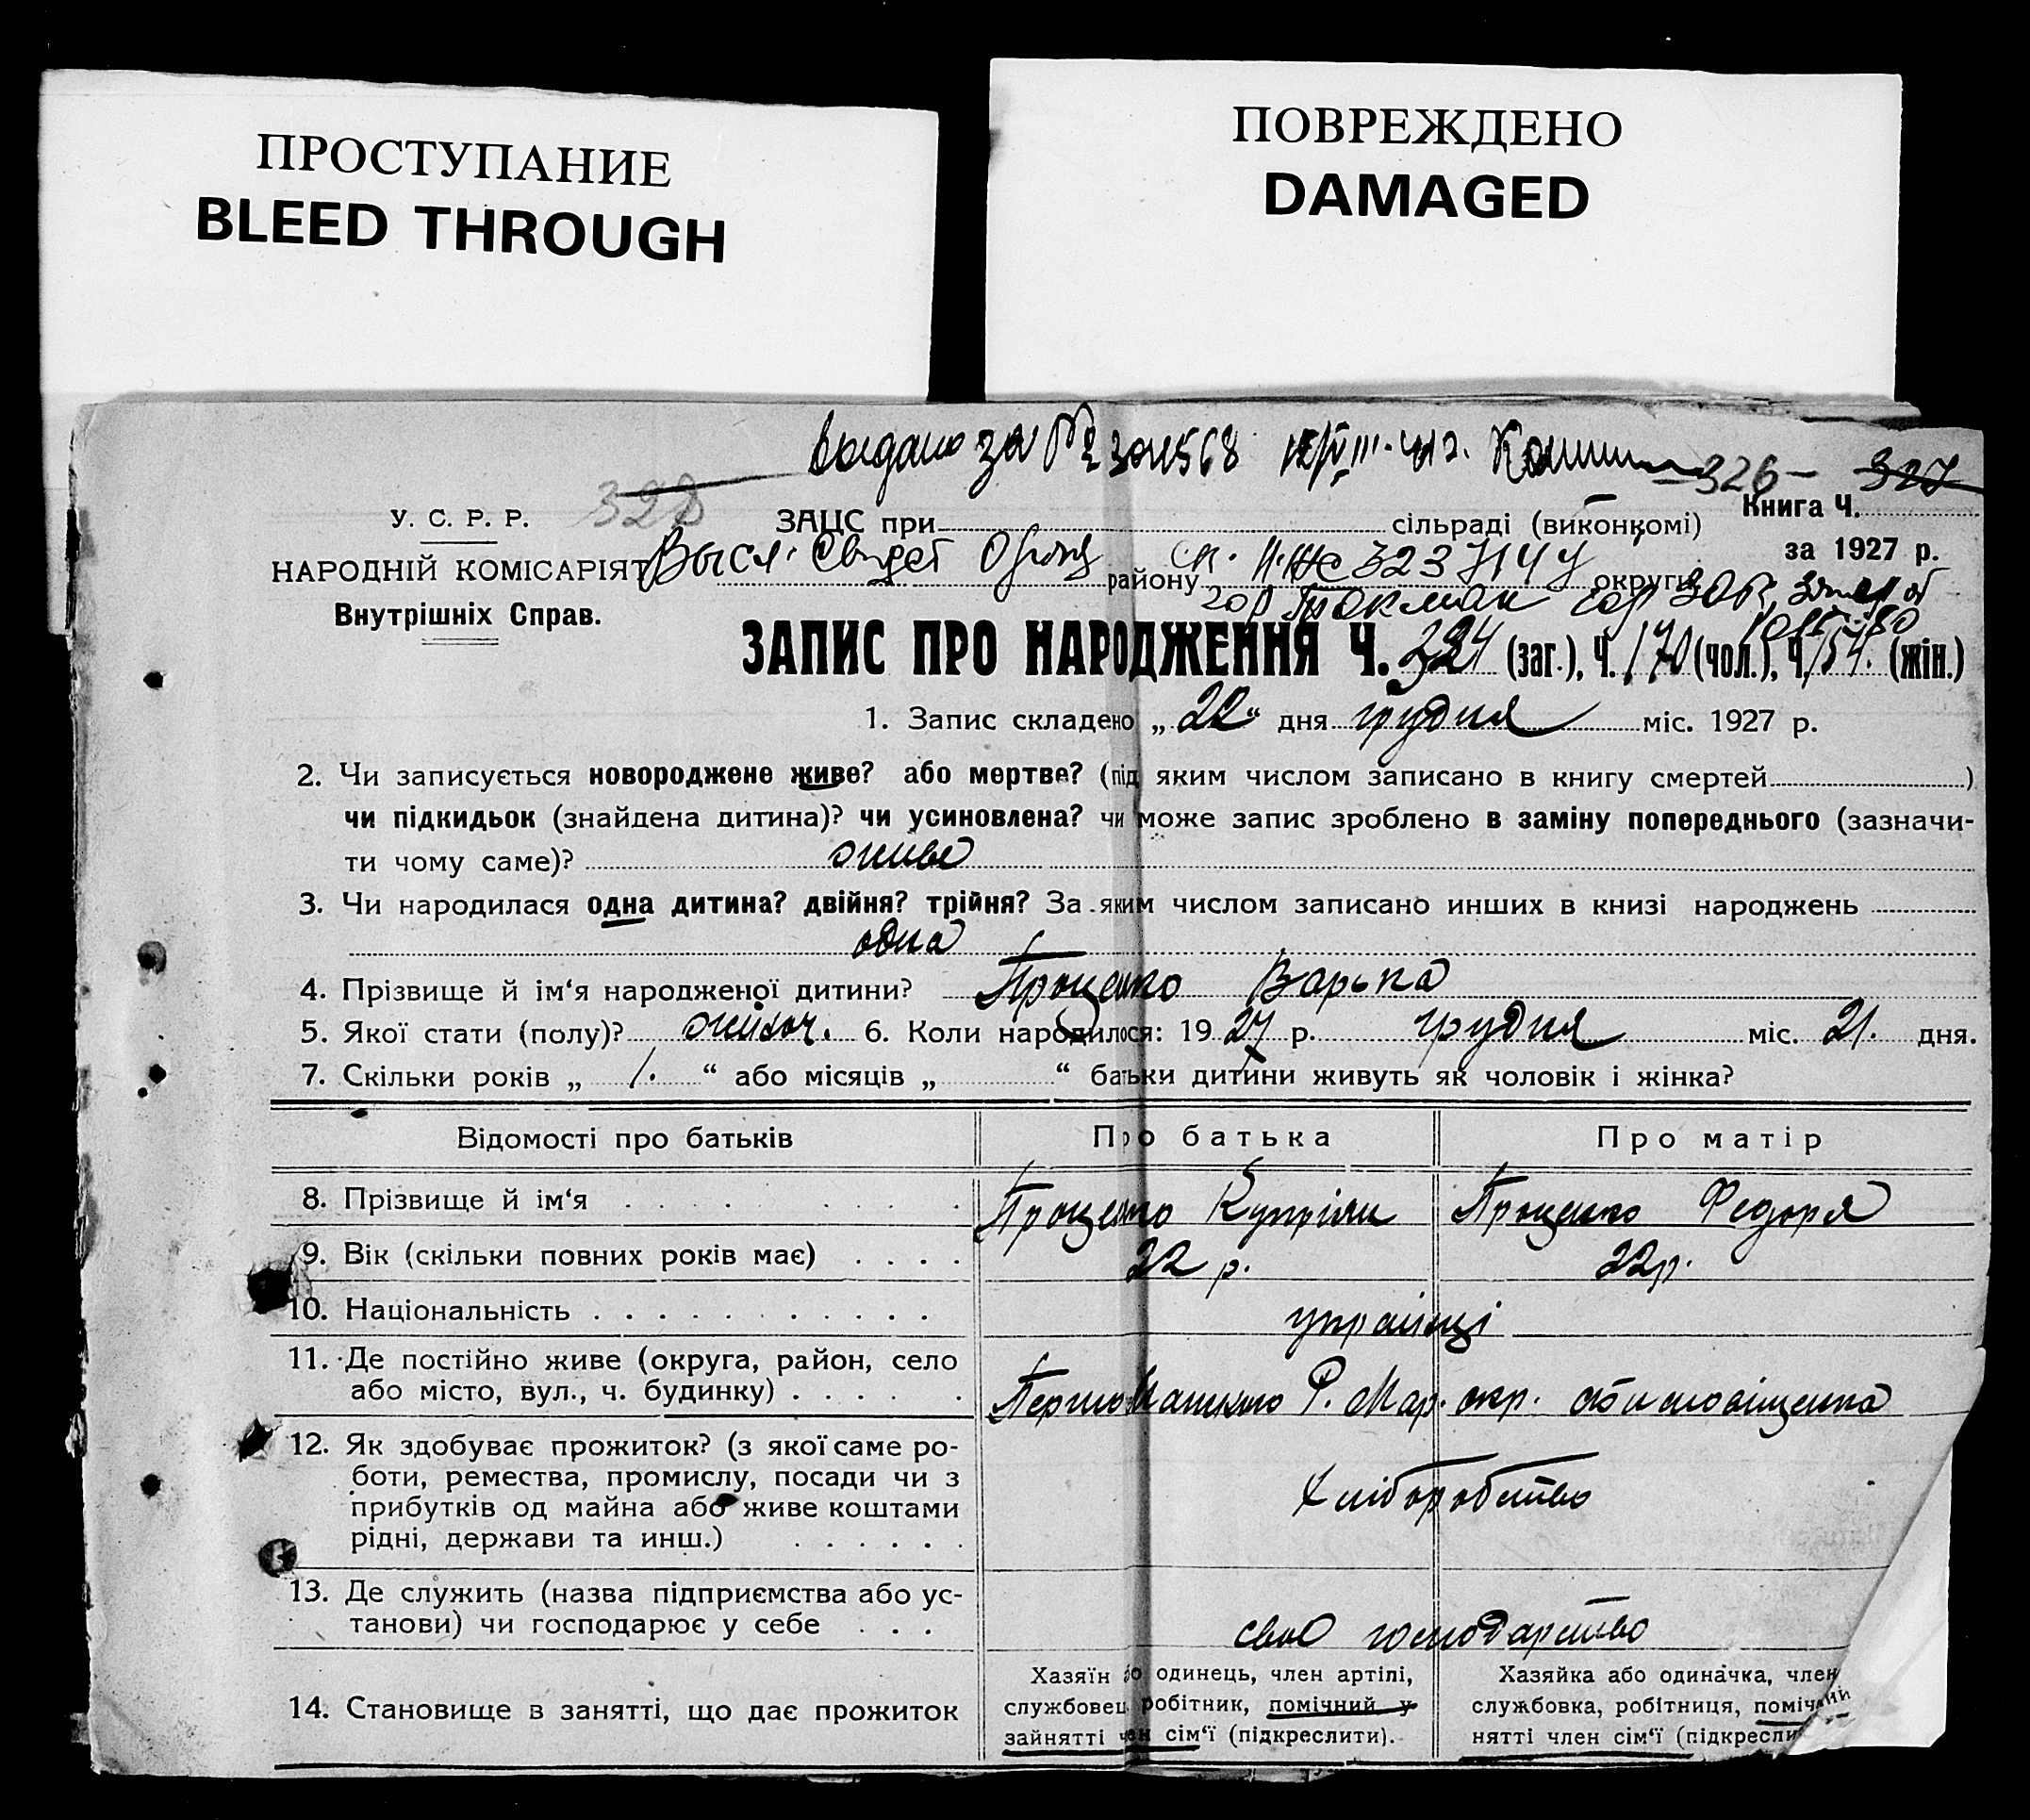 ПРОСТУПАНИЕ
BLEED THROUGH
ПОВРЕЖДЕНО
DAMAGED
выдано за № 12/VIII-41г.
328 326 327
У. С. Р. Р.
ЗАЦС при сільраді (виконкомі)
Книга Ч.
за 1927 р.
НАРОДНІЙ КОМІСАРІЯТ
Внутрішніх Справ.
району округи
гор Токмак
ЗАПИС ПРО НАРОДЖЕННЯ Ч. 324 (заг.), Ч. 170 (чол.), Ч. 154. (жін.)
1. Запис складено „ 22 “ дня грудня міс. 1927 р.
2. Чи записується новороджене живе? або мертве? (під яким числом записано в книгу смертей )
чи підкидьок (знайдена дитина)? чи усиновлена? чи може запис зроблено в заміну попереднього (зазначи-
ти чому саме)? живе
3. Чи народилася одна дитина? двійня? трійня? За яким числом записано инших в книзі народжень
одна
4. Прізвище й ім‘я народженої дитини? Проценко Варька
5. Якої стати (полу)? жіноч. 6. Коли народилося: 19 27 р. грудня міс. 21. дня.
7. Скільки років „ 1. “ або місяців „ “ батьки дитини живуть як чоловік і жінка?
Відомості про батьків Про батька Про матір
8. Прізвище й ім‘я Проценко Купріян Проценко Федоря
9. Вік (скільки повних років має) 22 р. 22р.
10. Національність українці
11. Де постійно живе (округа, район, село
або місто, вул., ч. будинку) Р. Мар. окр.
12. Як здобуває прожиток? (з якої саме ро-
боти, ремества, промислу, посади чи з
прибутків од майна або живе коштами
рідні, держави та инш.)
Хліборобство
13. Де служить (назва підприємства або ус-
танови) чи господарює у себе
своє господарство
14. Становище в занятті, що дає прожиток
Хазяїн або одинець, член артілі,
службовец робітник, помічний у
зайнятті член сім‘ї (підкреслити).
Хазяйка або одиначка, член
службовка, робітниця, поміч
нятті член сім‘ї (підкресли